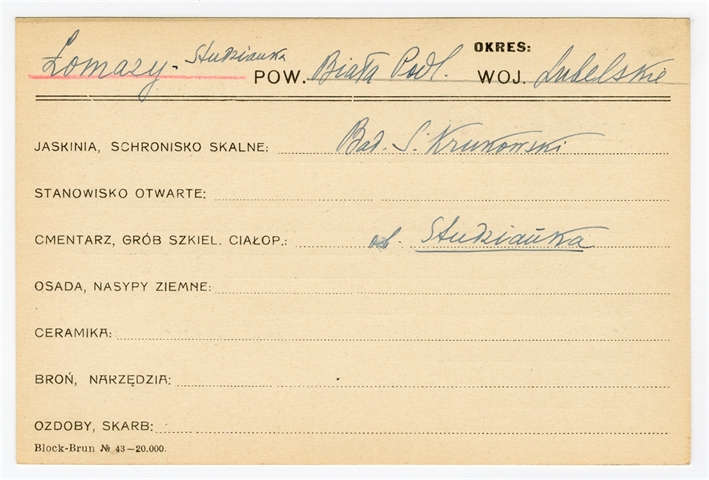 OKRES:
Łomazy - Studzianka POW. Biała Podl. WOJ. Lubelskie
JASKINIA, SCHRONISKO SKALNE: Bad. S. Krukowski
STANOWISKO OTWARTE:
CMENTARZ, GRÓB SZKIEL. CIAŁOP.: ob. Studzianka
OSADA, NASYPY ZIEMNE:
CERAMIKA:
BROŃ, NARZĘDZIA:
OZDOBY, SKARB:
Block-Brun № 43-20.000.